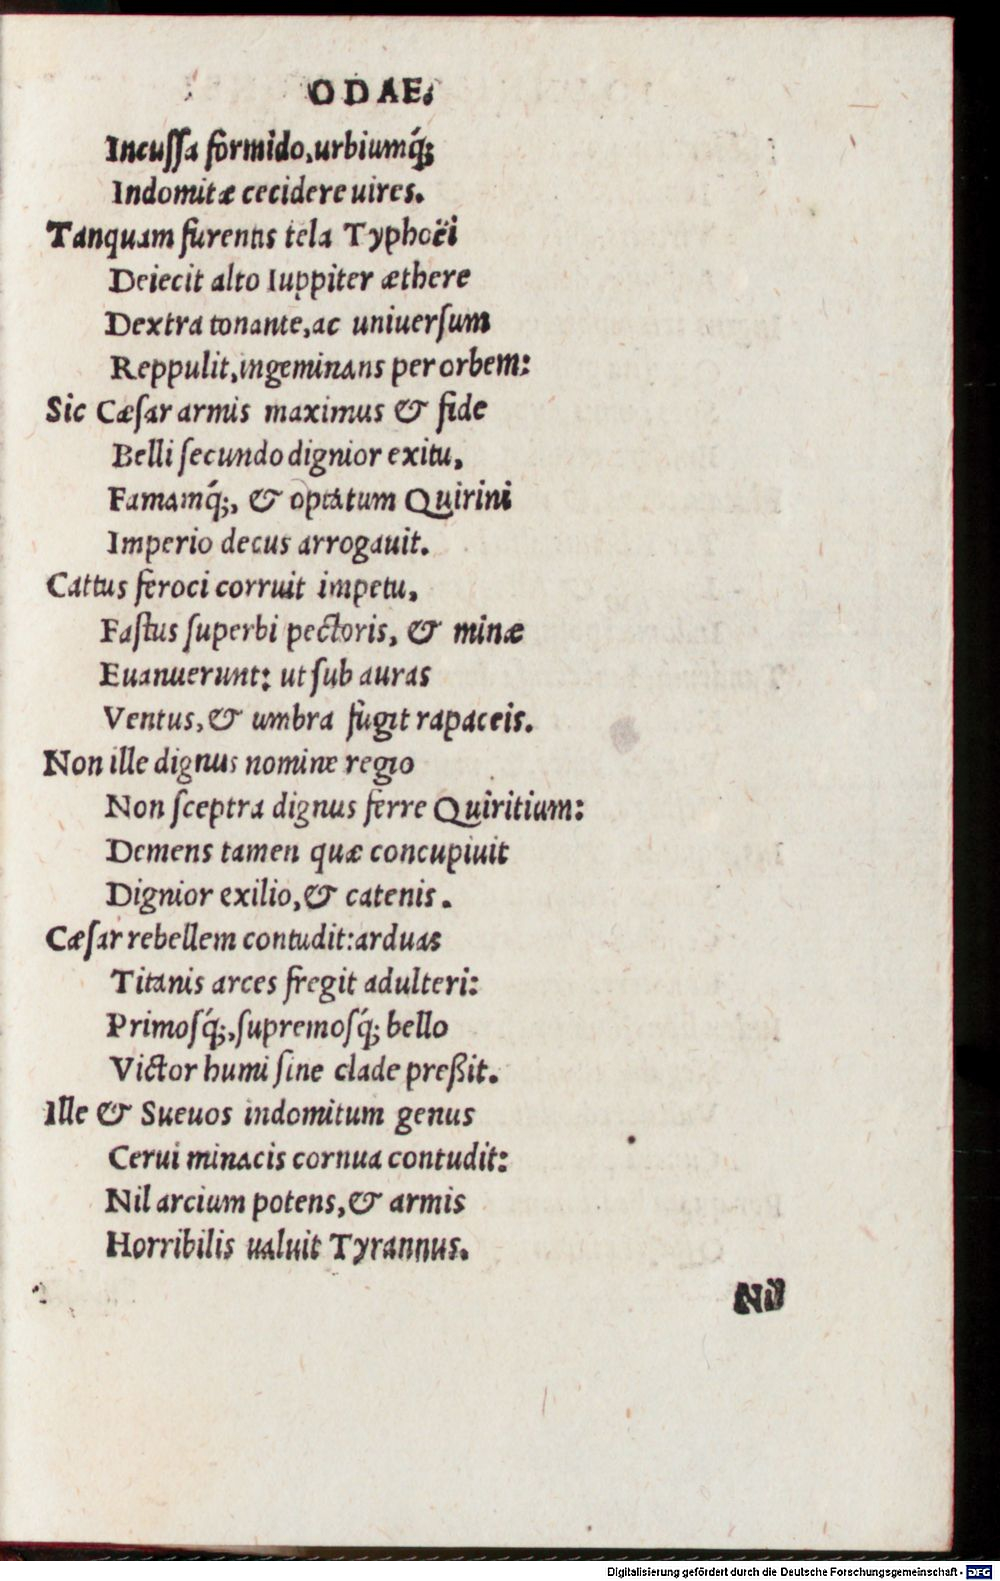 ODAE.
Incussa formido, urbiumq́;
Indomitæ cecidere uires.
Tanquam furentis tela Typhoëi
Deiecit alto Iuppiter æthere
Dextra tonante, ac uniuersum
Reppulit, ingeminans per orbem:
Sic Cæsar armis maximus & fide
Belli secundo dignior exitu,
Famamq́;, & optatum Quirini
Imperio decus arrogauit.
Cattus feroci corruit impetu,
Fastus superbi pectoris, & minæ
Euanuerunt: ut sub auras
Ventus, & umbra fugit rapaceis.
Non ille dignus nomine regio
Non sceptra dignus ferre Quiritium:
Demens tamen quæ concupiuit
Dignior exilio, & catenis.
Cæsar rebellem contudit: arduas
Titanis arces fregit adulteri:
Primosq́;, supremosq́; bello
Victor humi sine clade preßit.
Ille & Sueuos indomitum genus
Cerui minacis cornua contudit:
Nil arcium potens, & armis
Horribilis ualuit Tyrannus.
Nil
Digitalisierung gefördert durch die Deutsche Forschungsgemeinschaft - DFG